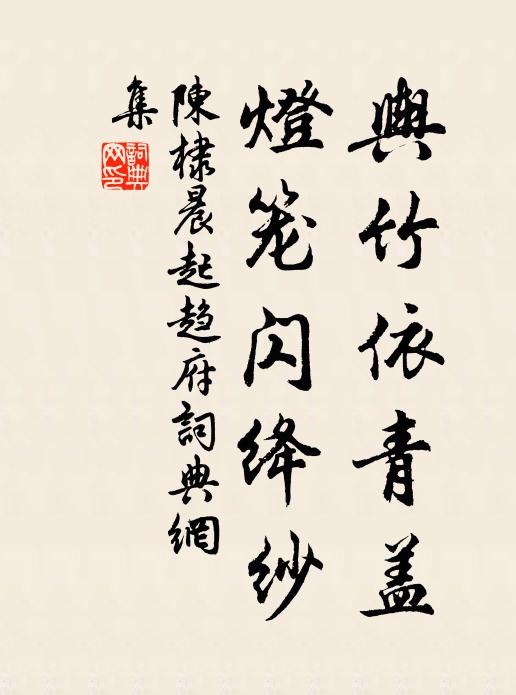 輿竹依青盖
燈笼闪绛纱
陳棣晨起趋府詞典網
集
詞典
网印